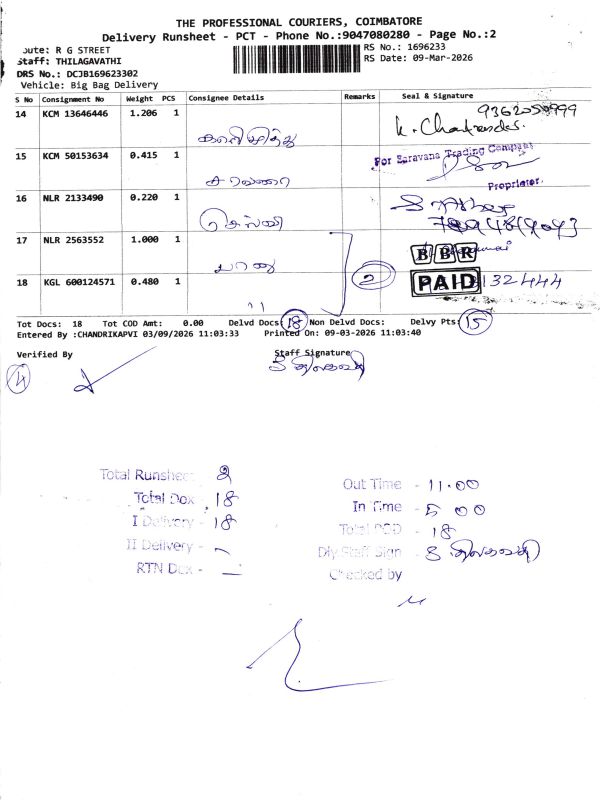 THE PROFESSIONAL COURIERS, COIMBATORE
Delivery Runsheet - PCT - Phone No.:9047080280 - Page No.:2
oute: R G STREET
Staff: THILAGAVATHI
RS No.: 1696233
RS Date: 09-Mar-2026
DRS No.: DCJB169623302
Vehicle: Big Bag Delivery
S No Consignment No Weight PCS Consignee Details Remarks Seal & Signature
14 KCM 13646446 1.206 1
9362050999
K. Chandrasekar
15 KCM 50153634 0.415 1
For Saravana Trading Company
Proprietor.
16 NLR 2133490 0.220 1
செல்வி
17 NLR 2563552 1.000 1
BBR
18 KGL 600124571 0.480 1
2
PAID 132444
Tot Docs: 18 Tot COD Amt: 0.00 Delvd Docs: 18 Non Delvd Docs: Delvy Pts: 15
Entered By :CHANDRIKAPVI 03/09/2026 11:03:33 Printed On: 09-03-2026 11:03:40
Verified By Staff Signature
14
Total Runsheet 2
Total Dox - 18
I Delivery - 18
II Delivery -
RTN Dox -
Out Time - 11.00
In Time - 5 00
Total POD - 18
Dly Staff Sign -
Checked by